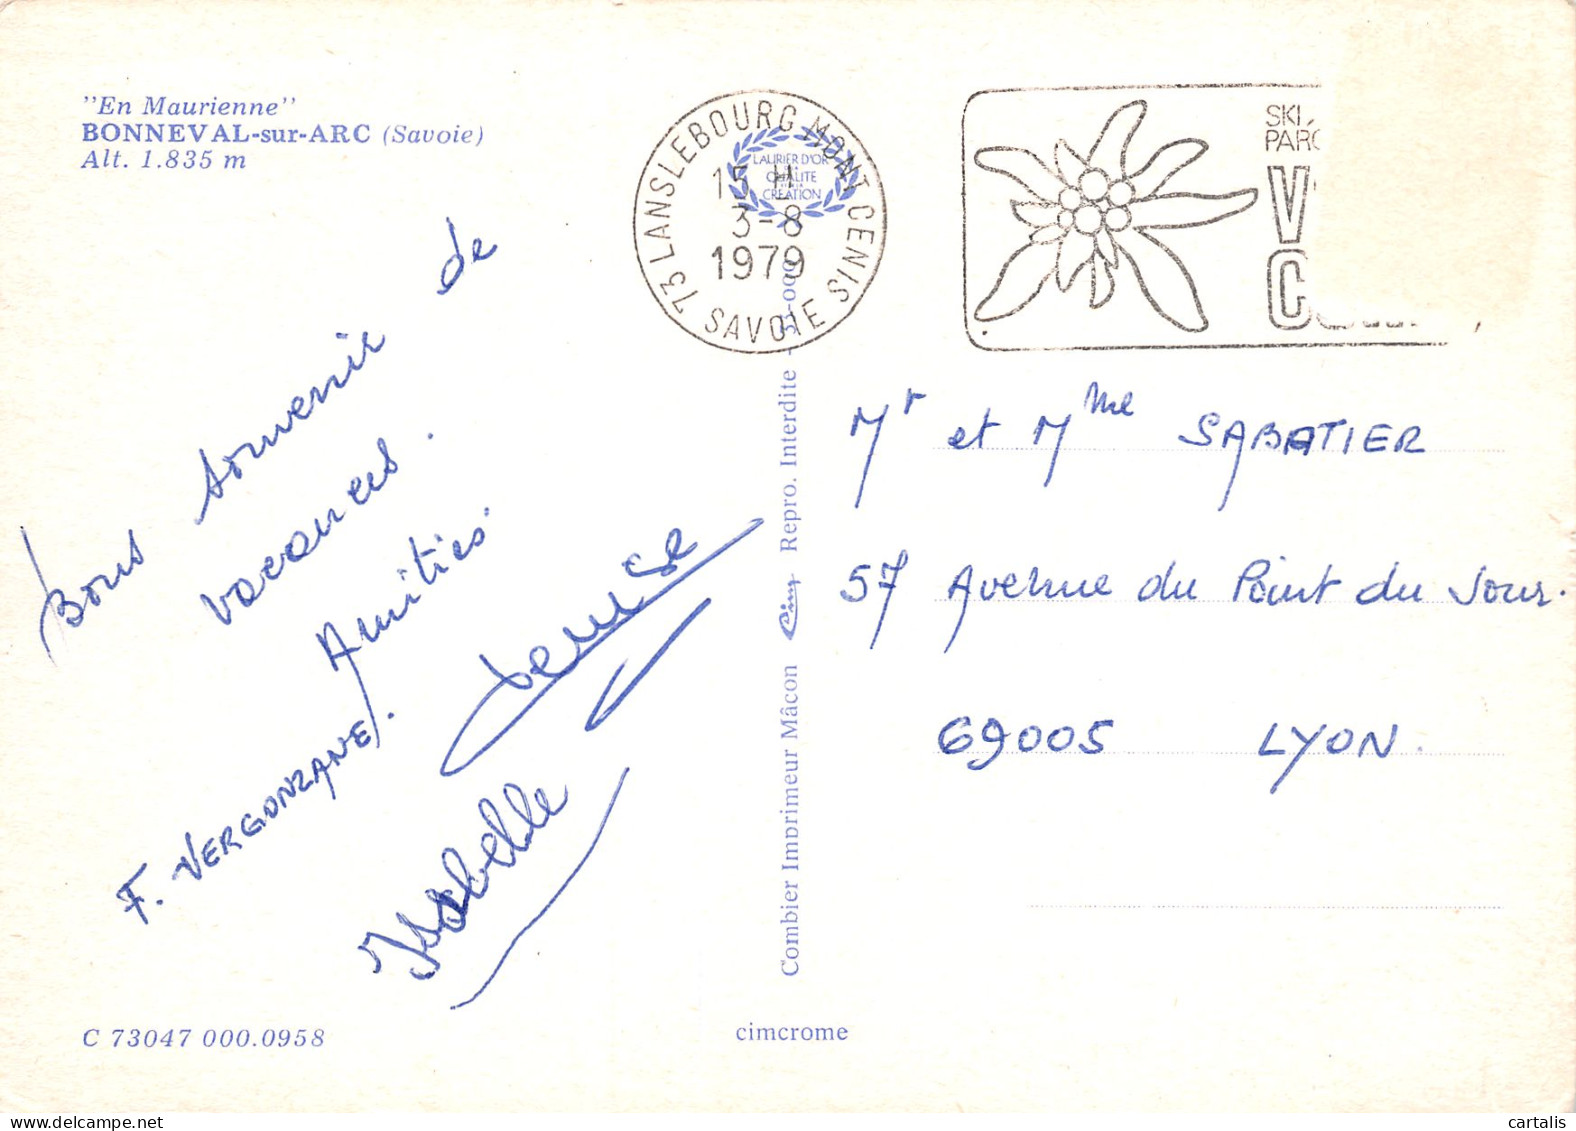 "En Maurienne"
BONNEVAL-sur-ARC (Savoie)
Alt. 1.835 m
Bons souvenir de
vacances.
Amitiés
F. VERGONZANE.
Denise
Isabelle
C 73047 000.0958
73 LANSLEBOURG MONT CENIS
SAVOIE
15 H
3-8
1979
LAURIER D'OR
QUALITE
CREATION
SKI
PARC
Combier Imprimeur Mâcon Cim Repro. Interdite
cimcrome
Mr et Mme SABATIER
57 Avenue du Point du Jour.
69005 LYON.
cartalis